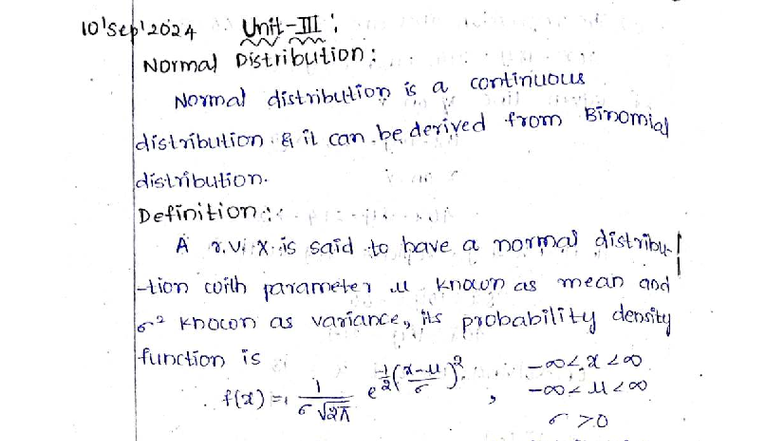 10'Sep'2024 Unit-III:
Normal Distribution:
Normal distribution is a continuous
distribution & it can be derived from Binomial
distribution.
Definition:
A r.v. x is said to have a normal distribu-
-tion with parameter μ known as mean and
σ² known as variance, its probability density
function is
f(x) = 1/(σ√2π) e^(-1/2((x-μ)/σ)²), -∞<x<∞
-∞<μ<∞
σ>0